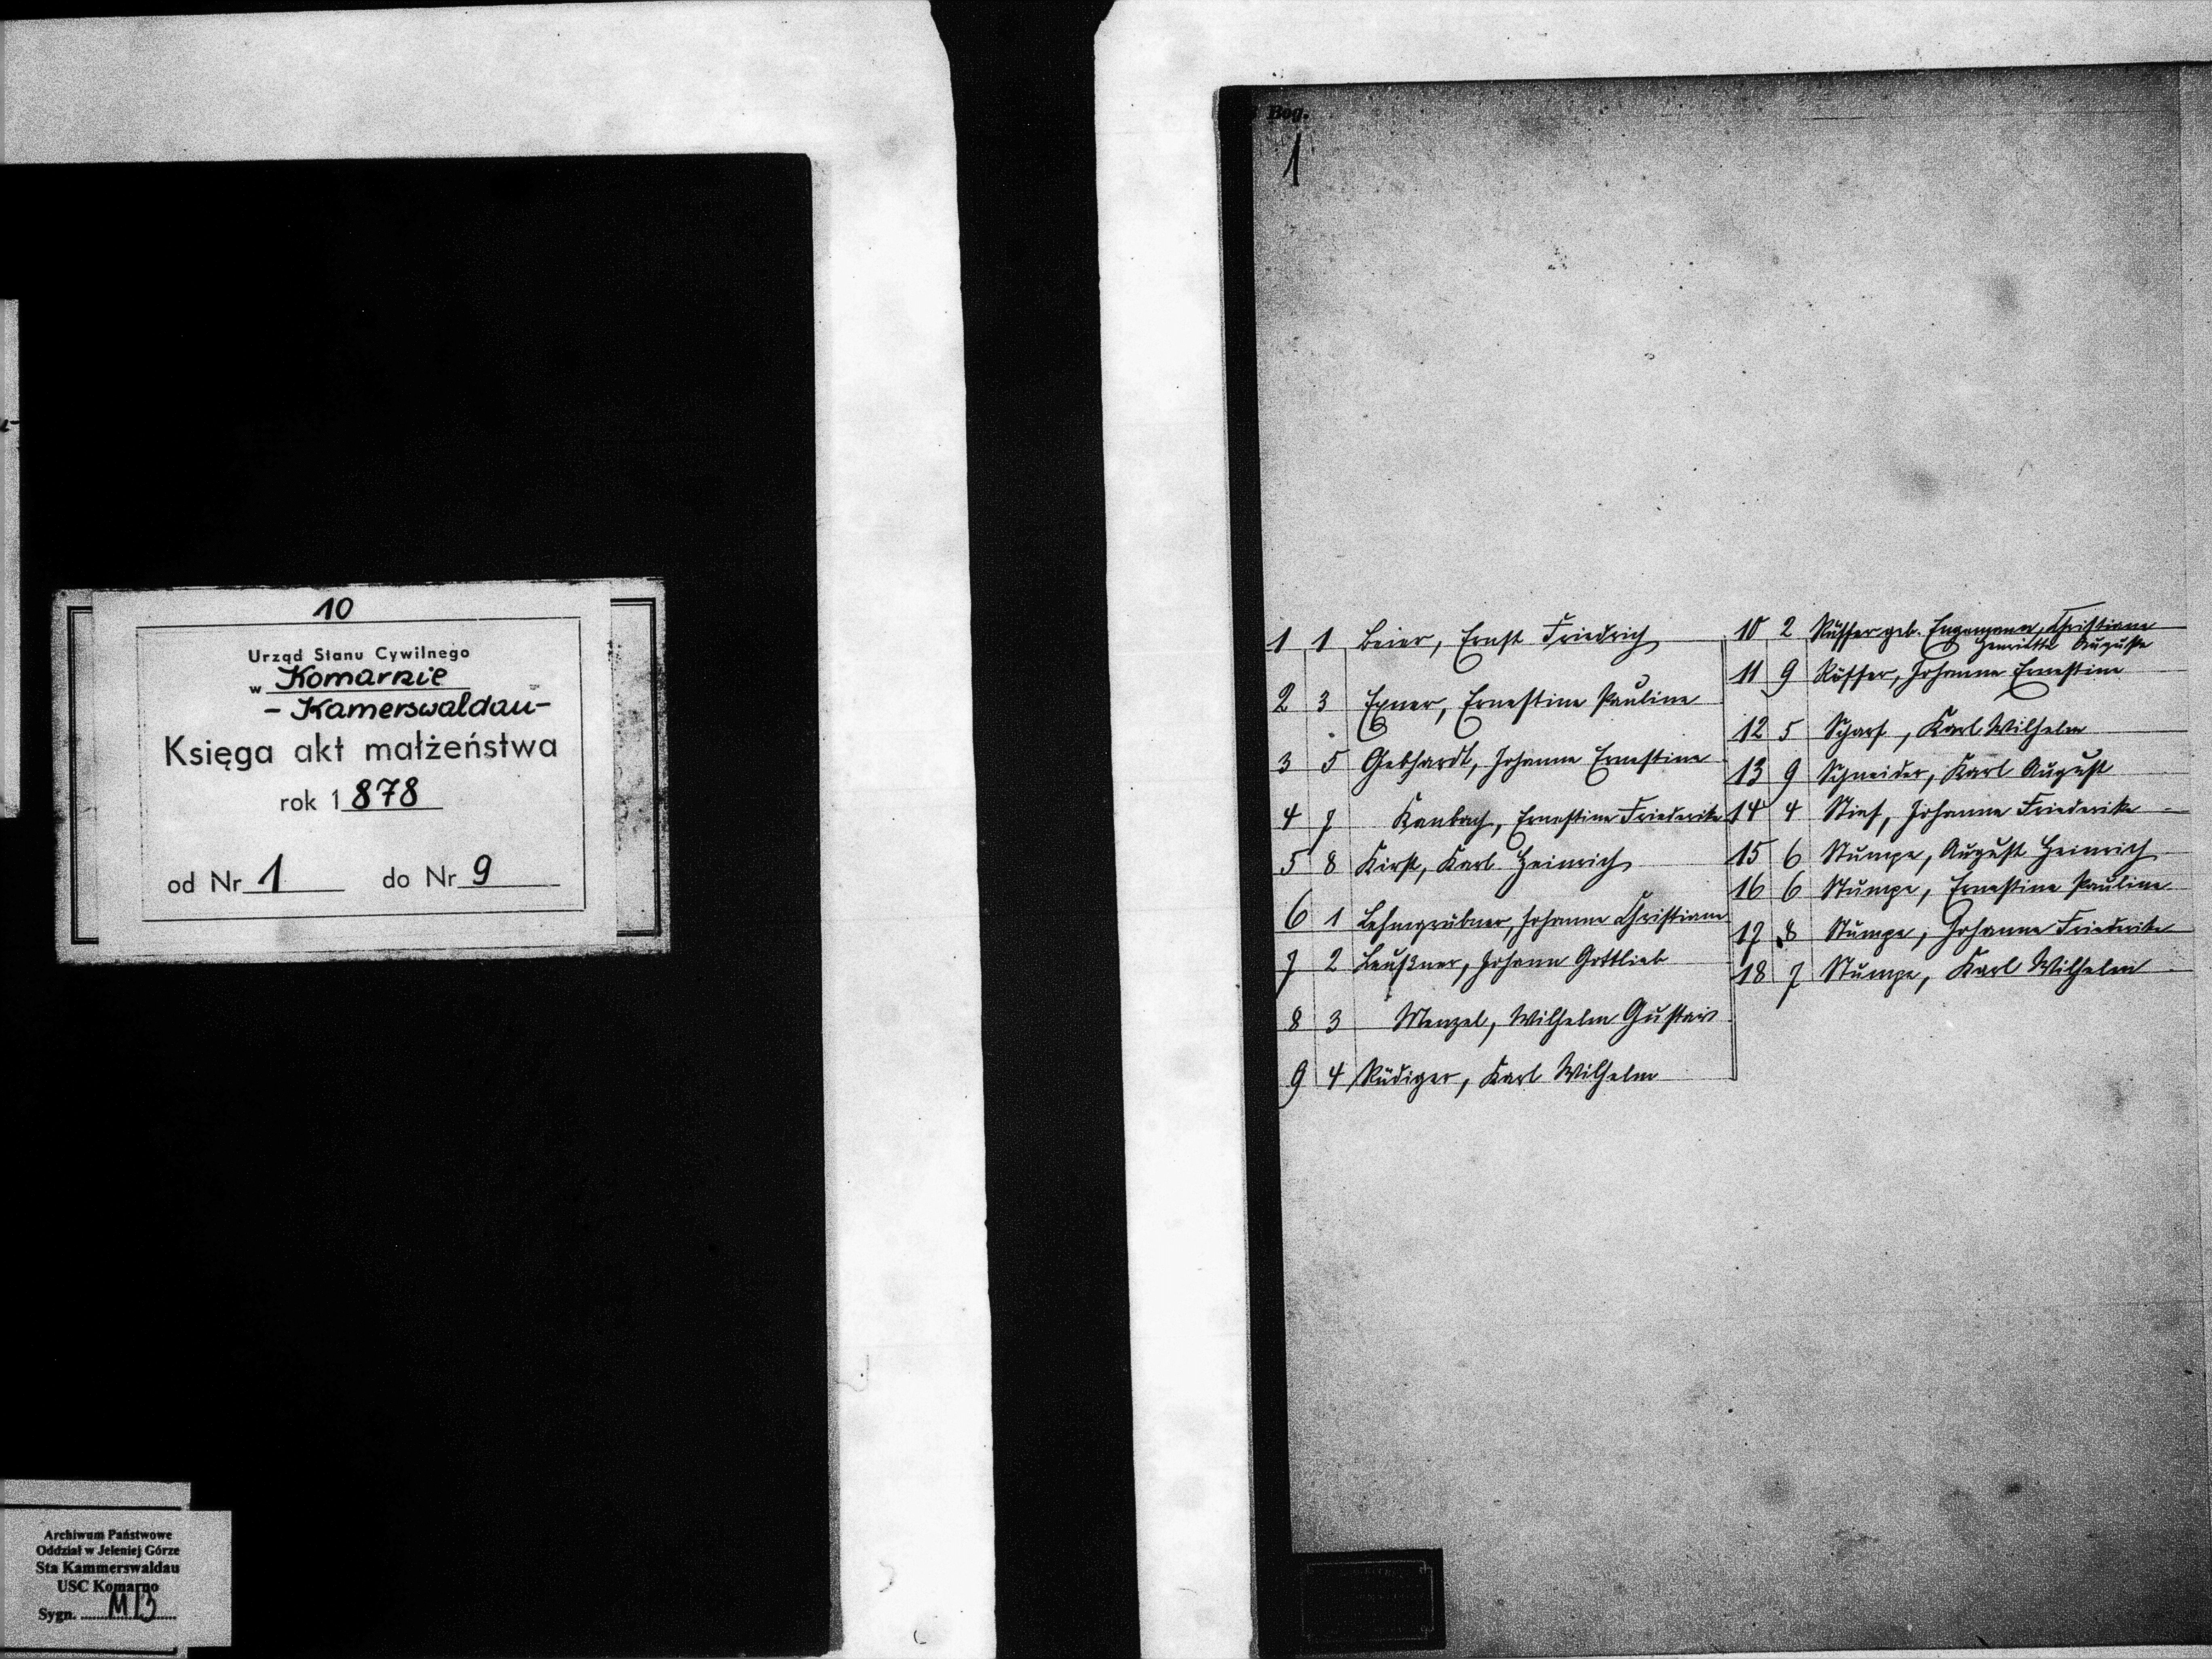 10
Urząd Stanu Cywilnego
w Komarnie
- Kamerswaldau -
Księga akt małżeństwa
rok 1878
od Nr 1 do Nr 9
Archiwum Państwowe
Oddział w Jeleniej Górze
Sta Kammerswaldau
USC Komarno
Sygn. M 13
Bog.
1
1 1 Beier, Ernst Friedrich
2 3 Exner, Ernestine Pauline
3 5 Gebhardt, Johanne Ernestine
4 7 Kanbach, Ernestine Friederike
5 8 Kirst, Karl Heinrich
6 1 Lehngrübner, Johanne Christiane
7 2 Leußner, Johann Gottlieb
8 3 Menzel, Wilhelm Gustav
9 4 Rüdiger, Karl Wilhelm
10 2 Rüffer geb. Engmann, Christiane
Henriette Auguste
11 9 Rüffer, Johanne Ernestine
12 5 Scharf, Karl Wilhelm
13 9 Schneider, Karl August
14 4 Stief, Johanne Friederike
15 6 Stumpe, August Heinrich
16 6 Stumpe, Ernestine Pauline
17 8 Stumpe, Johanne Friederike
18 7 Stumpe, Karl Wilhelm